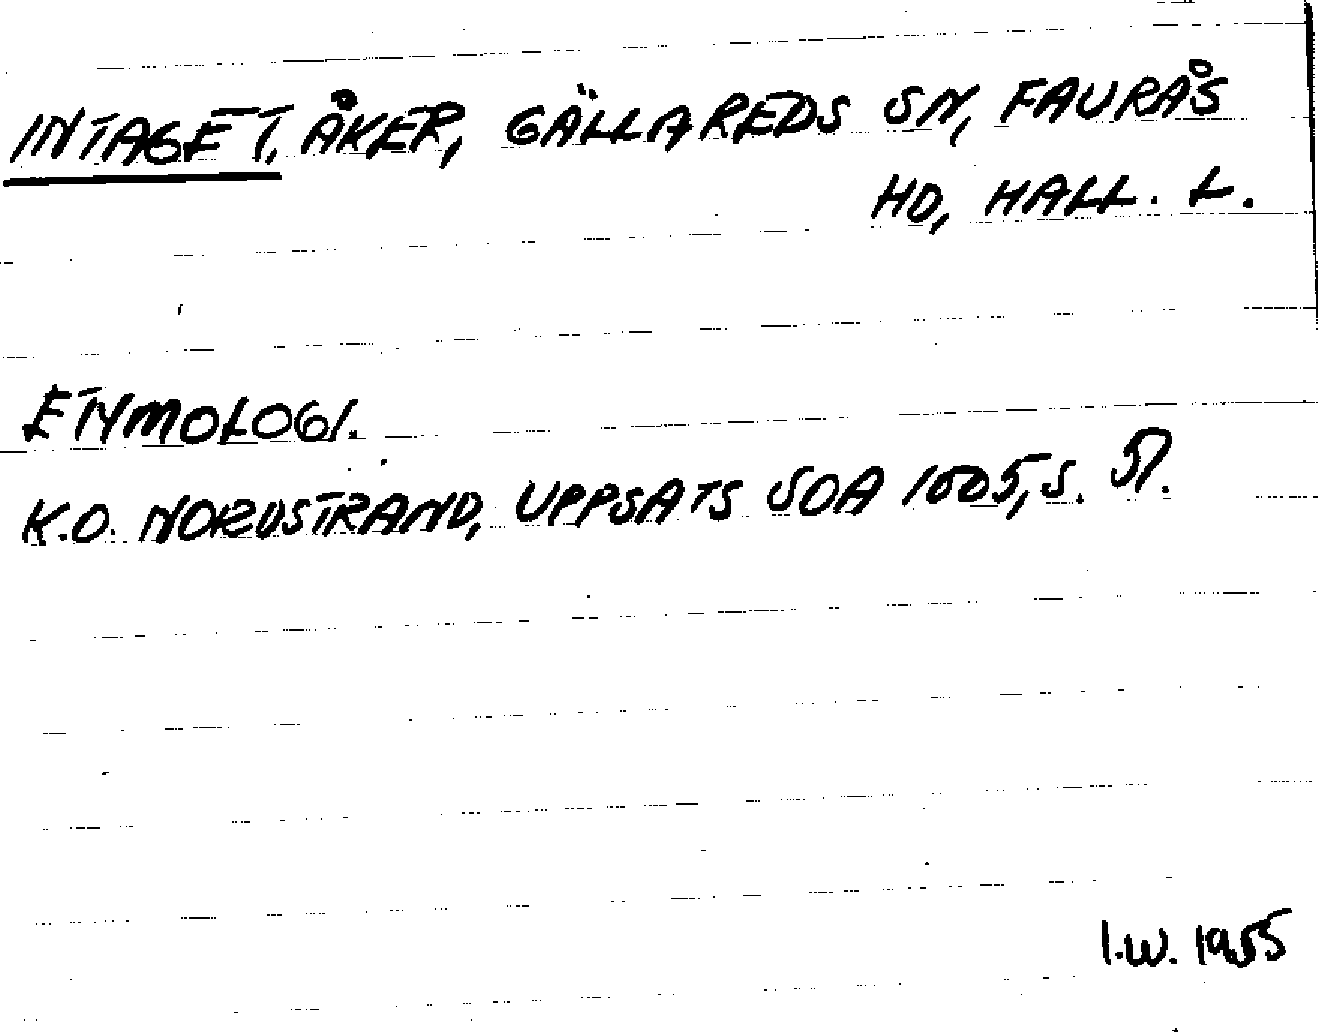 INTAGET, ÅKER, GÄLLAREDS SN, FAURÅS
HD, HALL. L.
ETYMOLOGI.
K.O. NORDSTRAND, UPPSATS SOA 1005, S. 57.
I.W. 1955